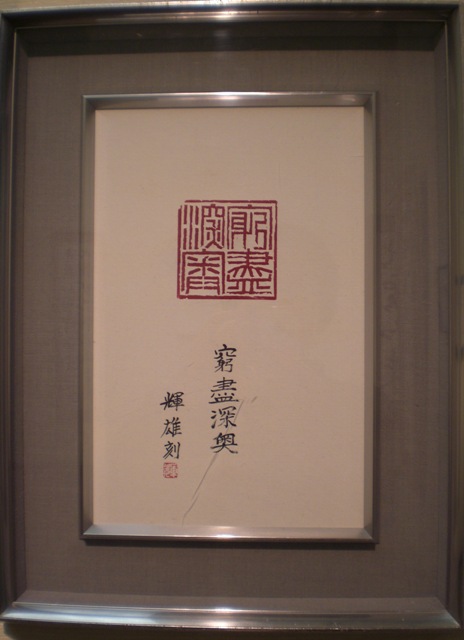 窮盡深奥
窮盡深奥
輝雄刻